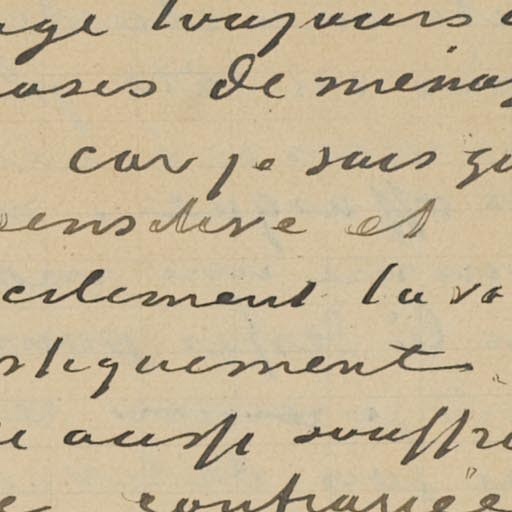 age toujours
oses de ménag
car je sais qu
sensitive et
cilement tu va
stiquement
u aussi souffre
e contrariée